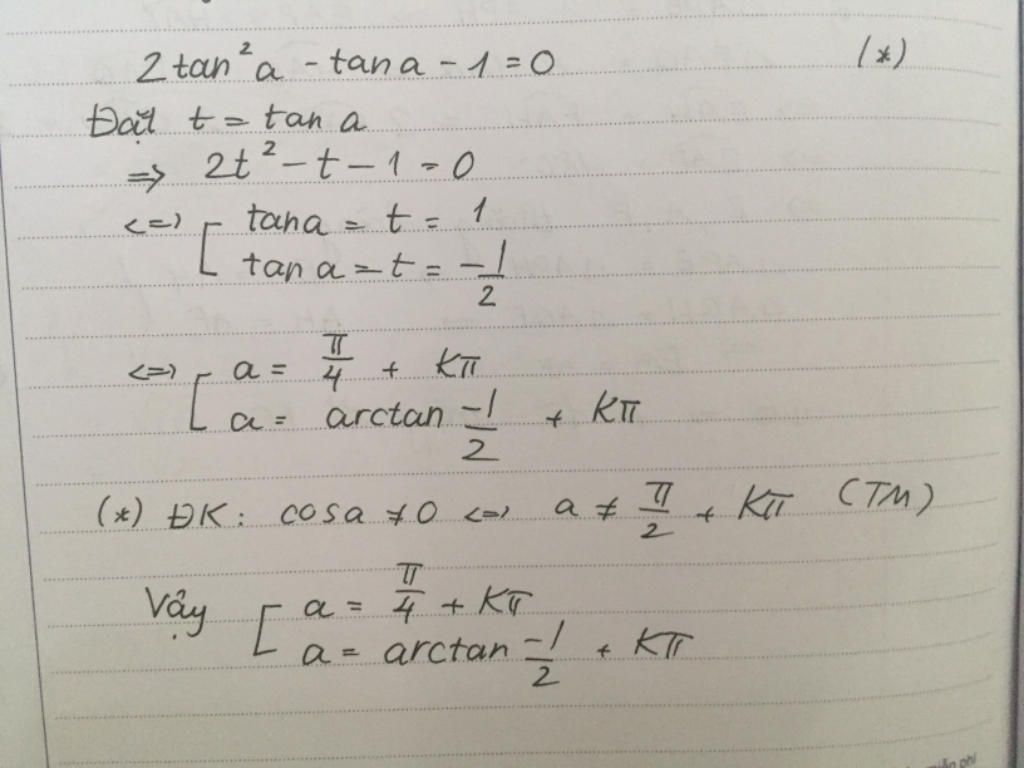 2tan²a - tana - 1 = 0 (*)
Đặt t = tan a
=> 2t² - t - 1 = 0
<=> [ tana = t = 1
tan a = t = -1/2
<=> [ a = π/4 + Kπ
a = arctan -1/2 + Kπ
(*) ĐK: cosa ≠ 0 <=> a ≠ π/2 + Kπ (TM)
Vậy [ a = π/4 + Kπ
a = arctan -1/2 + Kπ
phí